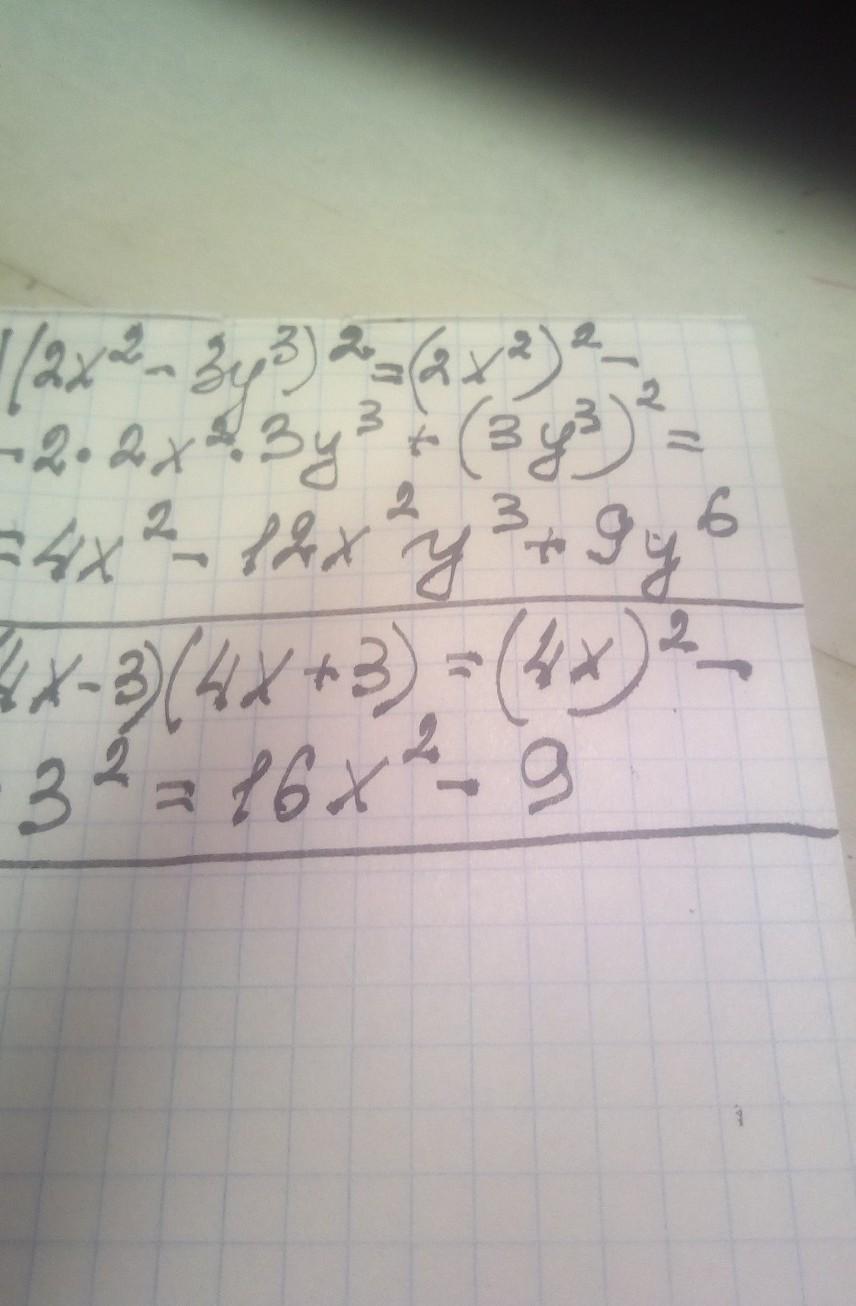 (2x² - 3y³)² = (2x²)² -
- 2 · 2x² · 3y³ + (3y³)² =
= 4x² - 12x²y³ + 9y⁶
4x - 3)(4x + 3) = (4x)² -
3² = 16x² - 9